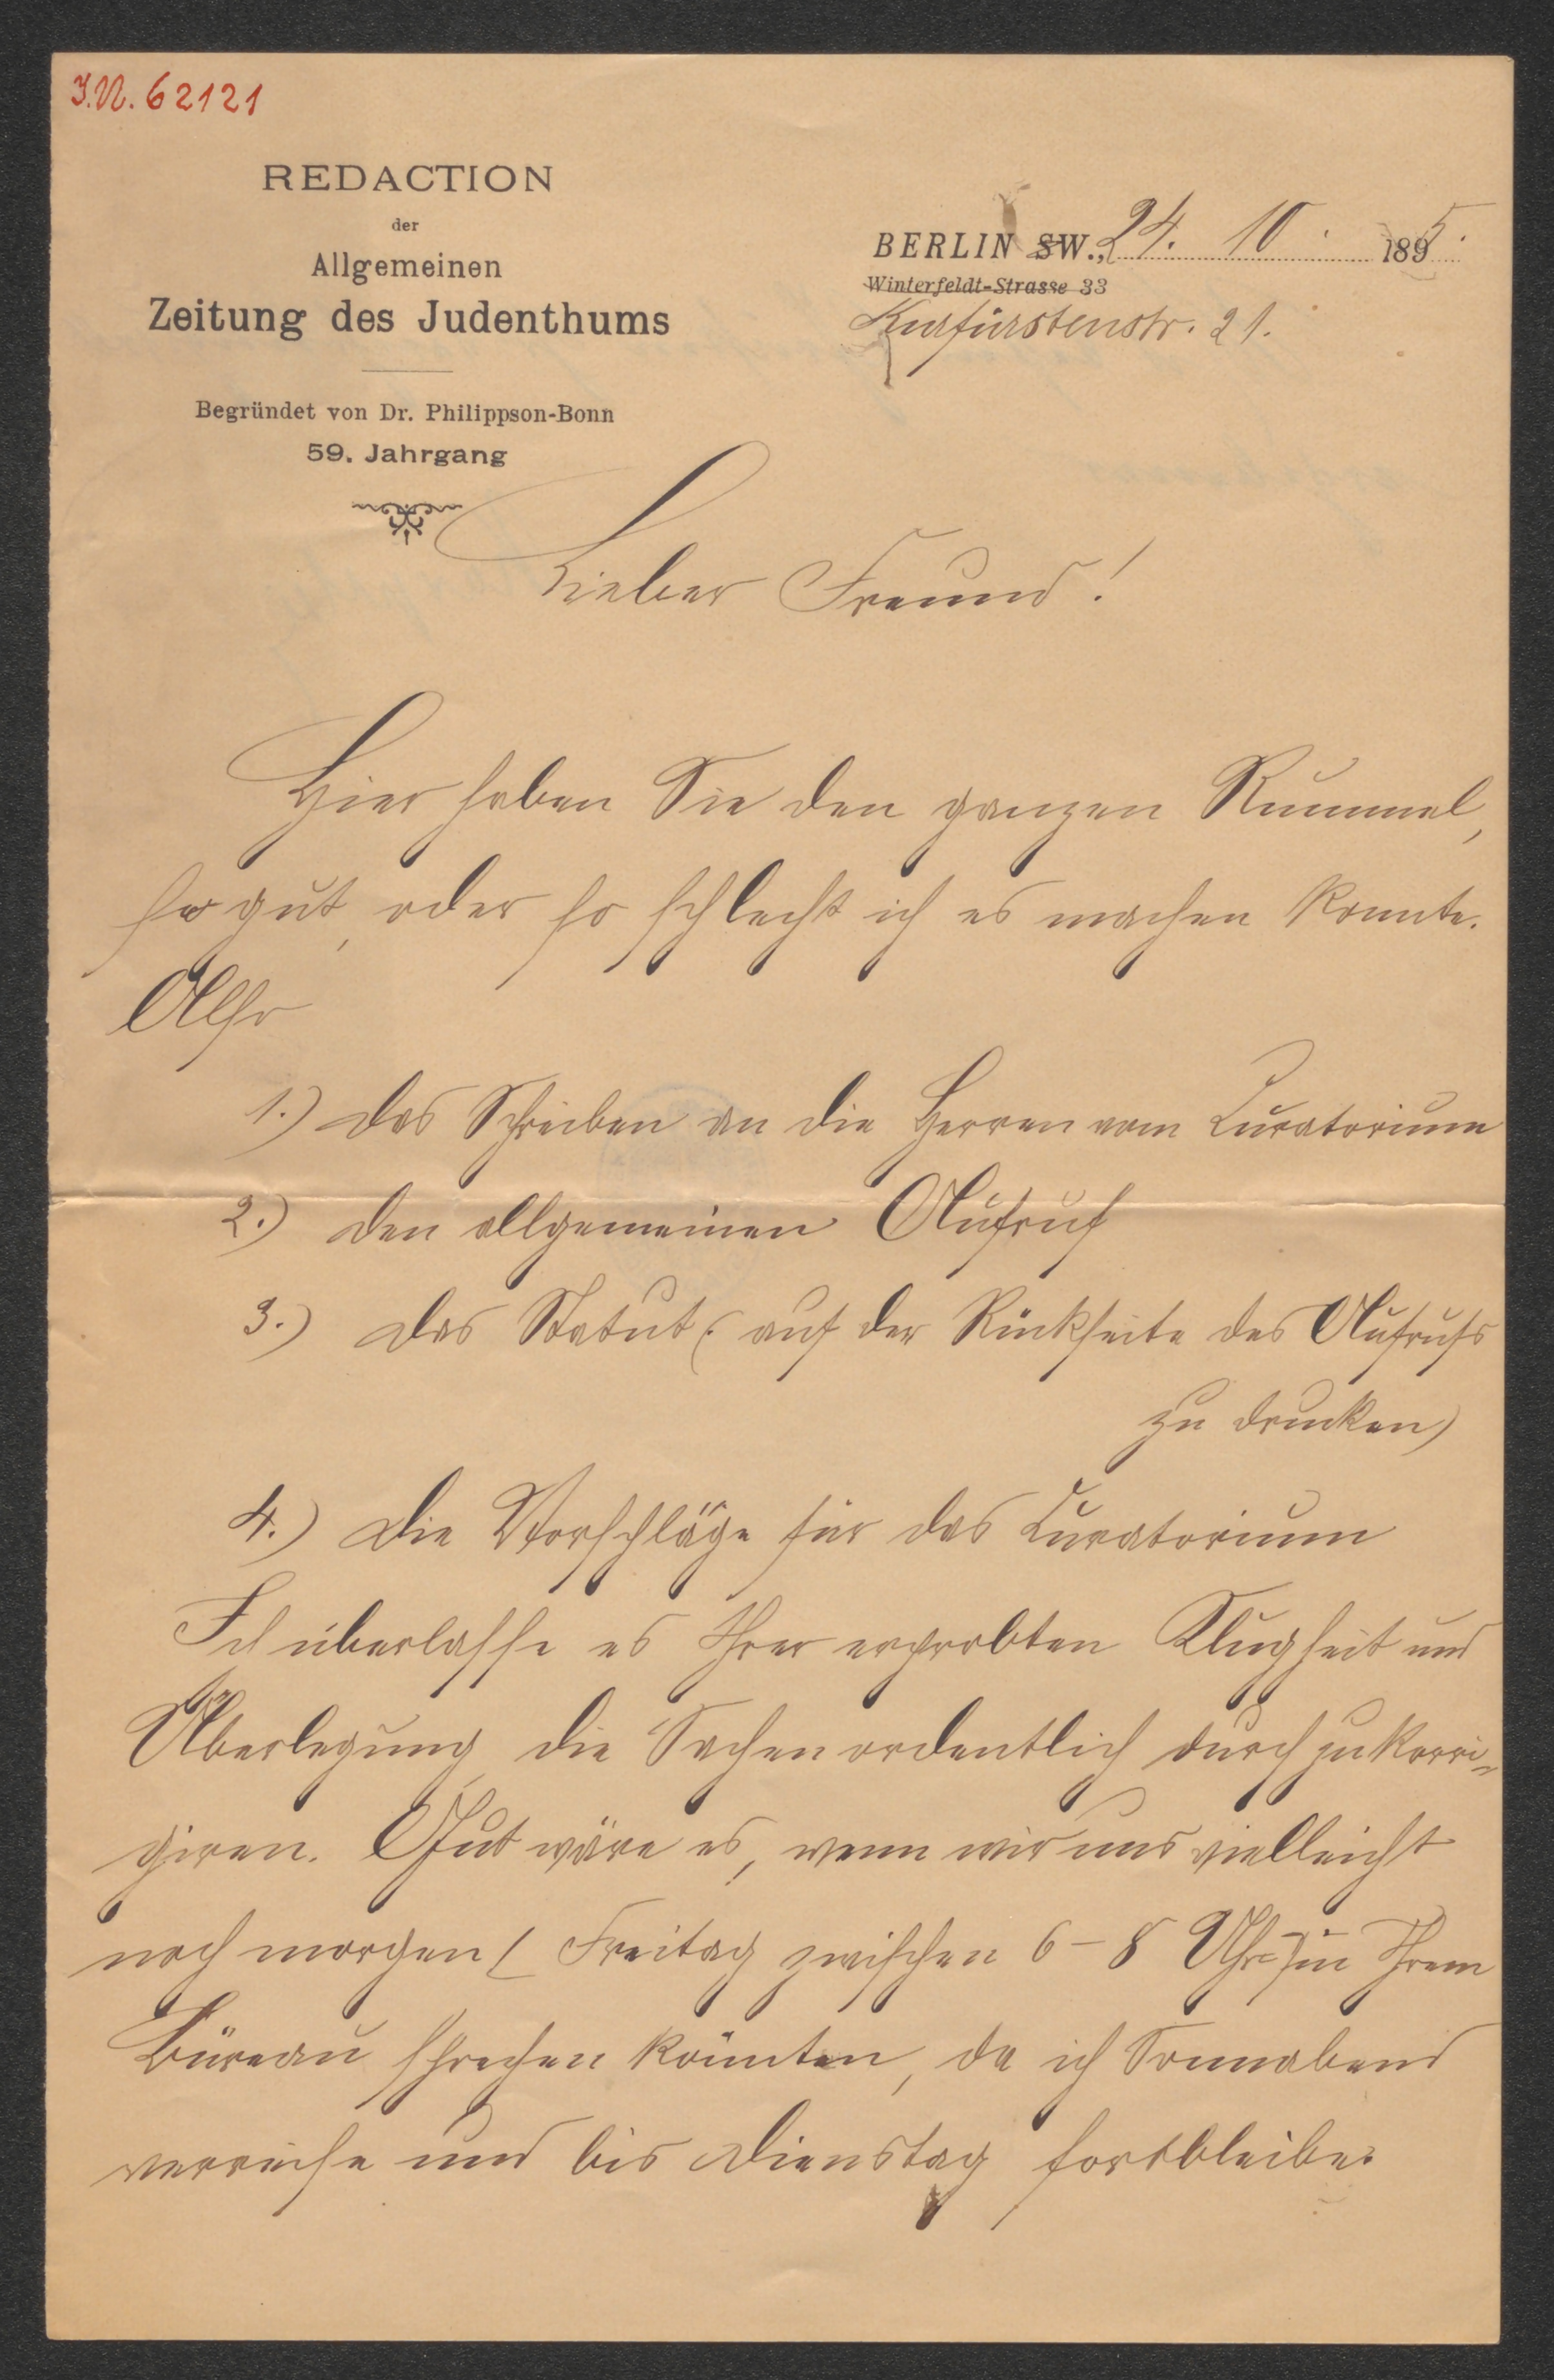 I.N. 62121
REDACTION
der
Allgemeinen
Zeitung des Judenthums
Begründet von Dr. Philippson-Bonn
59. Jahrgang
BERLIN SW., 24. 10. 1895.
Winterfeldt-Strasse 33
Kurfürstenstr. 21.
Lieber Freund!
Hier haben Sie den ganzen Rummel,
so gut, oder so schlecht ich es machen konnte.
Also
1.) das Schreiben an die Herren vom Curatorium
2.) den allgemeinen Aufruf
3.) das Statut (auf der Rückseite des Aufrufs
zu drucken)
4.) die Vorschläge für das Curatorium
Ich überlasse es Ihrer erprobten Klugheit und
Überlegung die Sachen ordentlich durchzukorri-
giren. Gut wäre es, wenn wir uns vielleicht
noch morgen (Freitag zwischen 6-8 Uhr) in Ihrem
Büreau sprechen könnten, da ich Sonnabend
verreise und bis Dienstag fortbleibe.